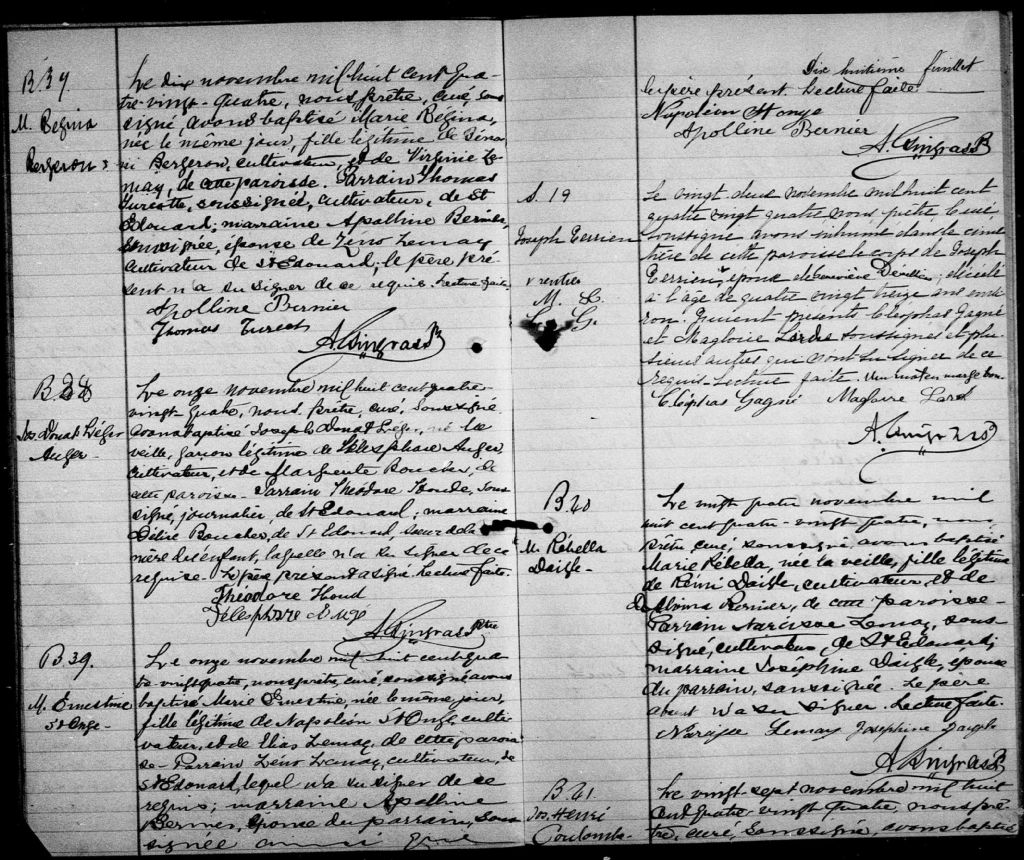 B 37.
M. Regina
Bergeron
Le dix novembre mil huit cent qua-
tre-vingt-quatre, nous, prêtre, curé, sous
signé, avons baptisé Marie Regina,
née le même jour, fille légitime de
Bergeron, cultivateur, et de Virginie Le-
may, de cette paroisse. Parrain Thomas
Turcotte, soussigné, cultivateur, de St
Edouard; marraine Apolline Bernier,
soussignée, épouse de Zéno Lemay
cultivateur de St Edouard; le père pré-
sent n'a su signer de ce requis. Lecture faite.
Apolline Bernier
Thomas Turcot
A. Gingras Ptr
B 38
Jos. Donat Léger
Auger-
Le onze novembre mil huit cent quatre-
vingt-quatre, nous, prêtre, curé, soussigné
avons baptisé Joseph Donat Léger, né la
veille, garçon légitime de Télesphore Auger,
cultivateur, et de Marguerite Boucher, de
cette paroisse. Parrain Théodore Houde, sous
signé, journalier, de St Edouard; marraine
Boucher, de St Edouard, soeur de la
mère de l'enfant, laquelle n'a su signer de ce
requise. Le père présent a signé. Lecture faite.
Théodore Houd
Télesphore Auge
A. Gingras Ptre
B 39.
M. Ernestine
St Onge-
Le onze novembre mil huit cent qua-
tre-vingt-quatre, nous prêtre, curé, soussigné avons
baptisé Marie Ernestine, née le même jour,
fille légitime de Napoléon St Onge, culti-
vateur, et de Lemay, de cette parois-
se. Parrain Zéno Lemay, cultivateur, de
St Edouard, lequel n'a su signer de ce
requis; marraine Apolline
Bernier, épouse du parrain, sous
signée ainsi que
Dix huitième feuillet
le père présent Lecture faite
Napoléon St onge
Apolline Bernier
A. Gingras Ptr
S. 19
Joseph Terrien
rentier
M. C.
C. G.
Le vingt deux novembre mil huit cent
quatre vingt quatre nous prêtre curé
soussigné avons inhumé dans le cime
tière de cette paroisse le corps de Joseph
Terrien, époux de Geneviève, décédé
à l'âge de quatre vingt treize ans envi-
ron. Furent présents Cléophas Gagné
et Magloire soussignés et plu-
sieurs autres qui n'ont su signer de ce
requis. Lecture faite. Un mot en marge bon.
Cléophas Gagné Magloire
A. Gingras Ptr
B 40
M. Rébella
Daigle-
Le vingt quatre novembre mil
huit cent quatre-vingt quatre, nous
prêtre curé, soussigné avons baptisé
Marie Rébella, née la veille, fille légitime
de Rémi Daigle, cultivateur, et de
Bernier, de cette paroisse-
Parrain Narcisse Lemay, sous-
signé, cultivateur, de St Edouard;
marraine Joséphine Daigle, épouse
du parrain, soussignée. Le père
absent n'a su signer. Lecture faite.
Narcisse Lemay Josephine Daigle
A. Gingras Ptr
B 41
Jos. Henri
Coulombe-
Le vingt-sept novembre mil huit
cent quatre vingt quatre nous prê-
tre, curé, soussigné, avons baptisé